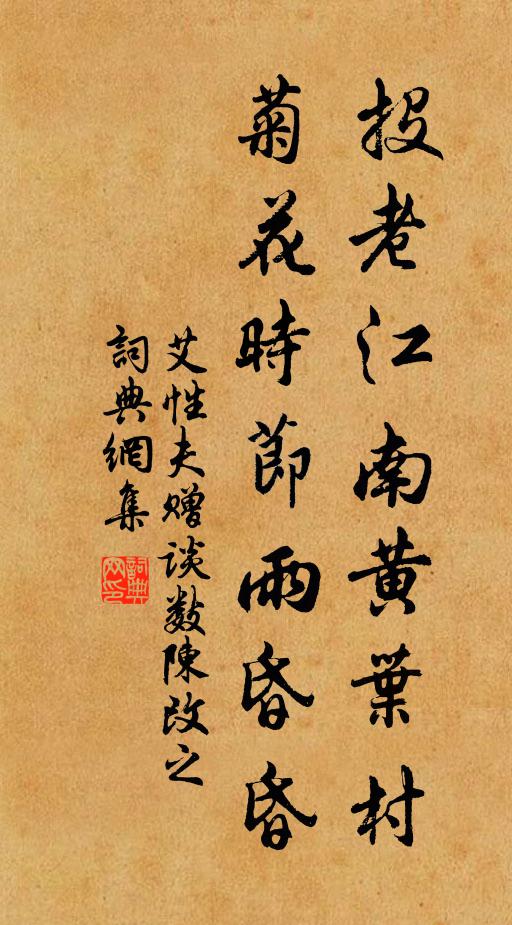 投老江南黃葉村
菊花時節雨昏昏
艾性夫贈談數陳改之
詞典網集
詞典
网印